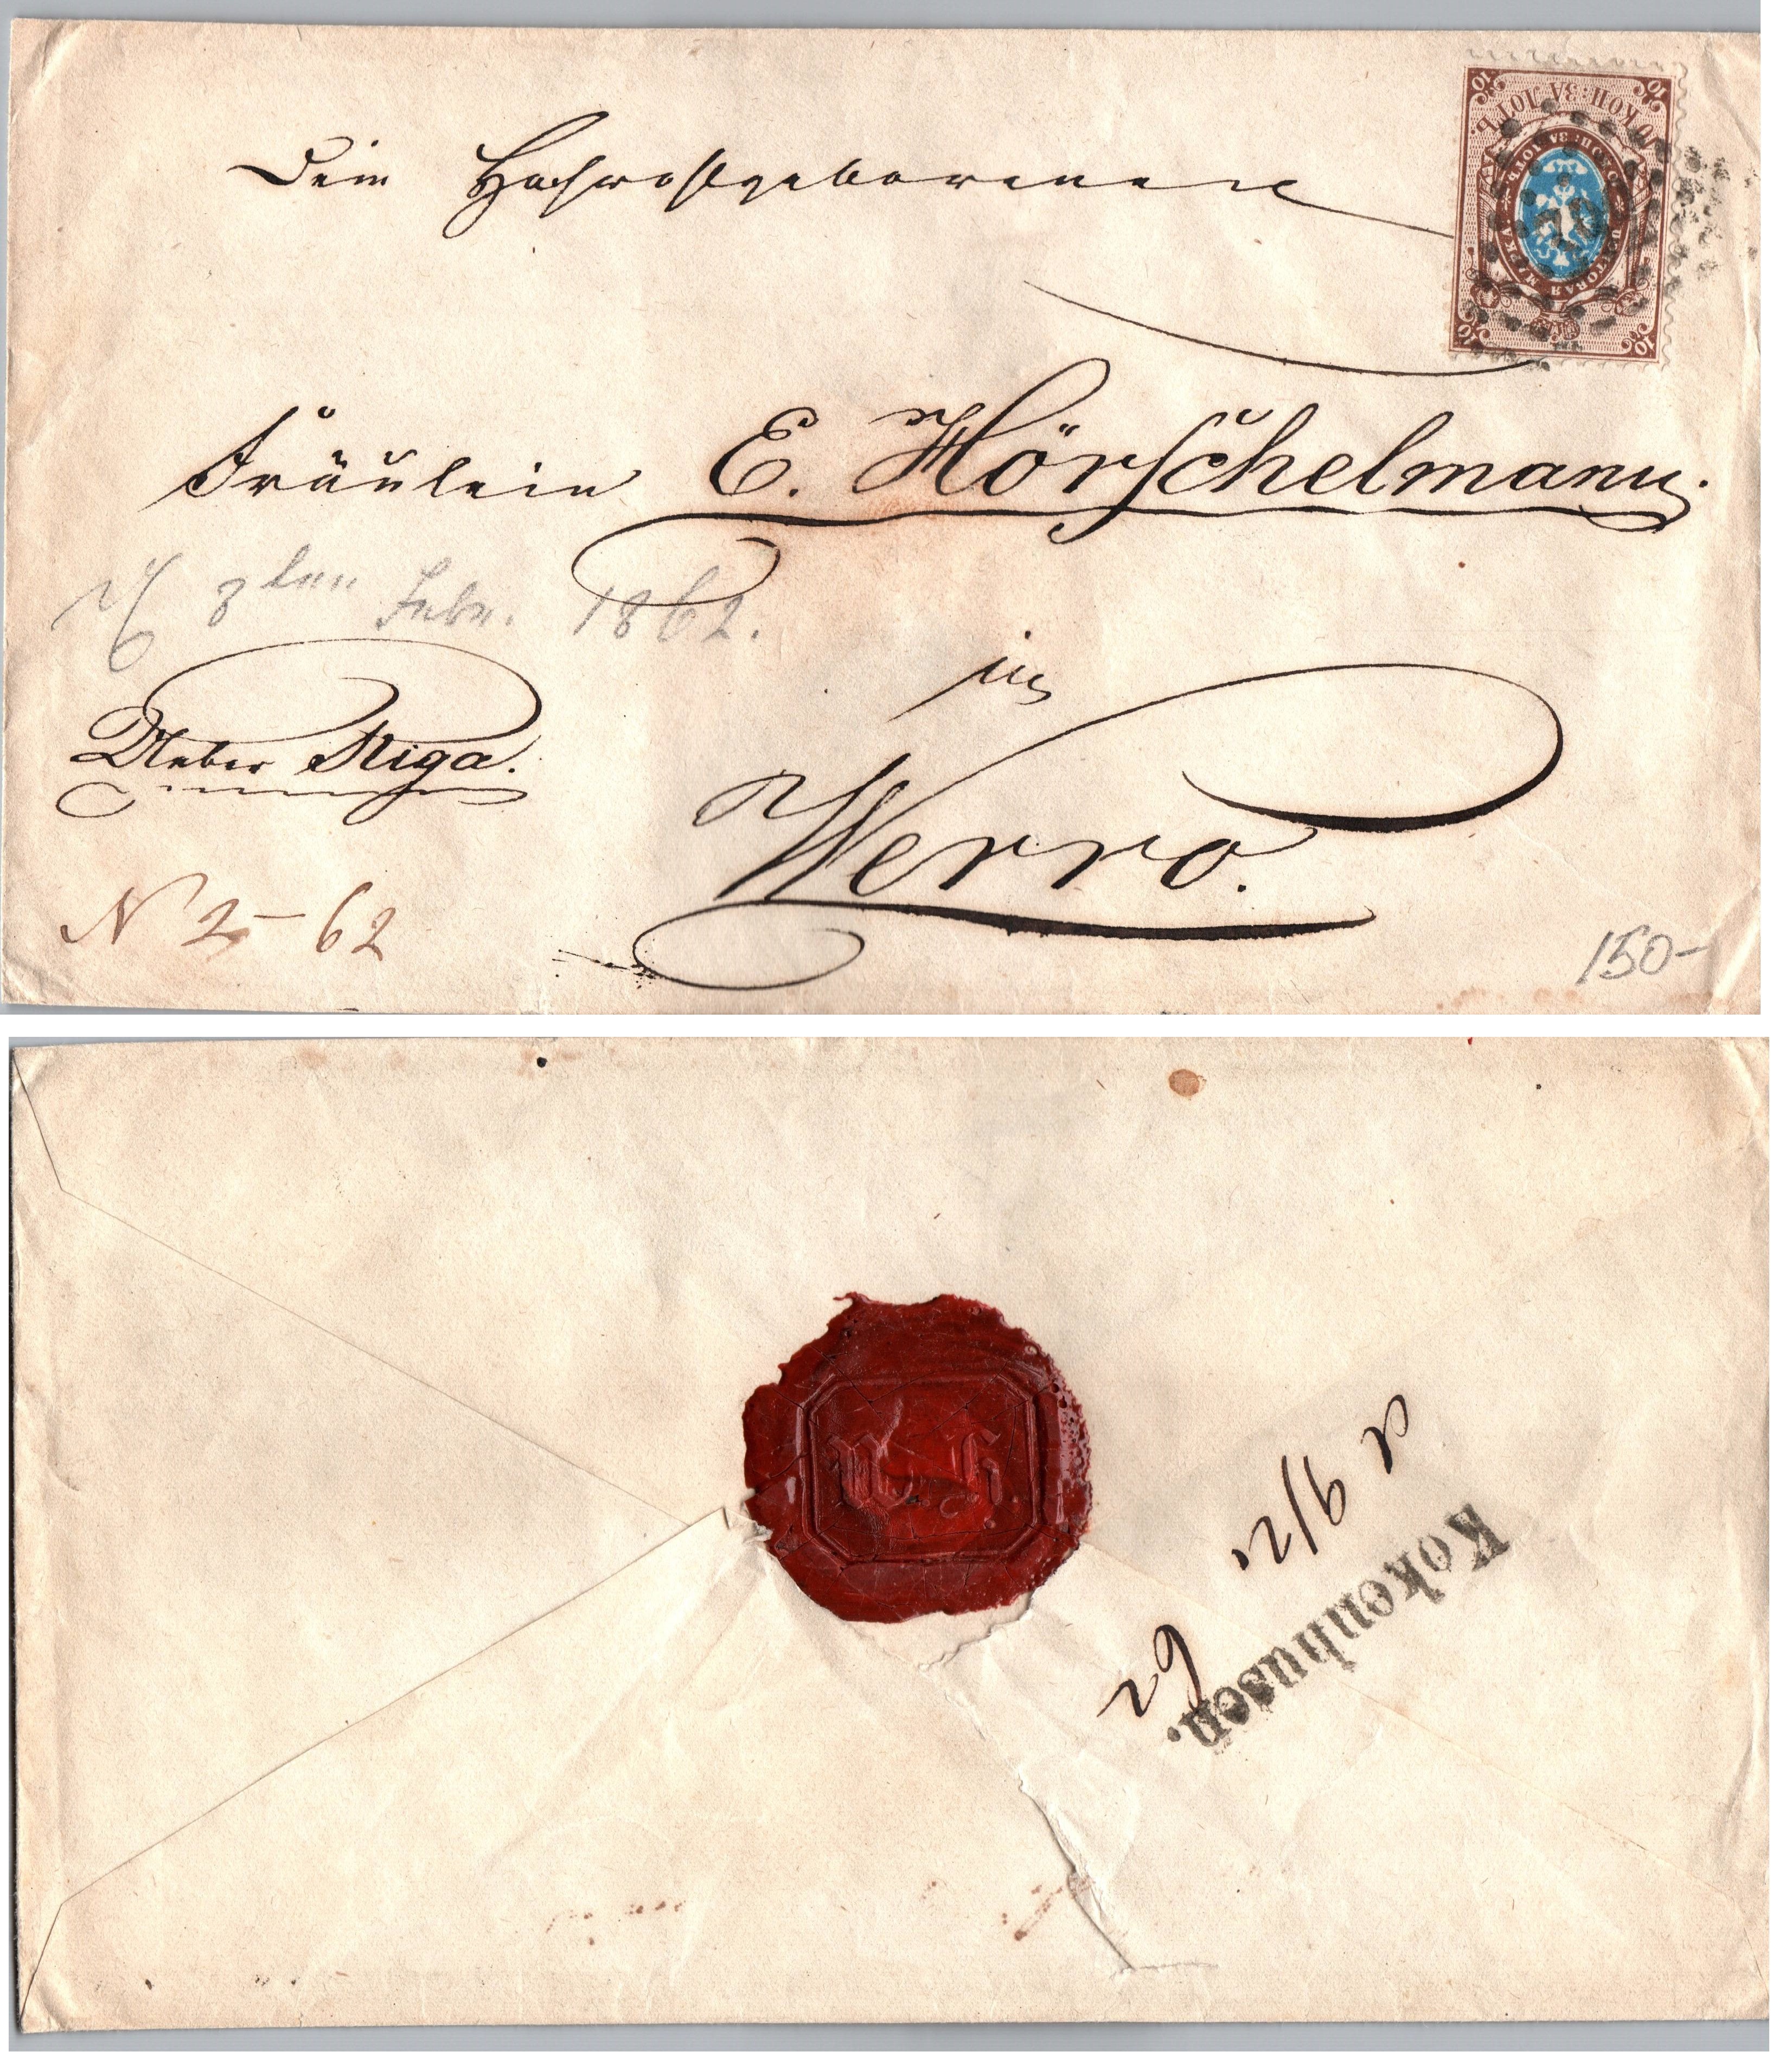 Hochwohlgeborenen
Fräulein E. Hörschelmann.
8ten Febr. 1862.
in
Ueber Riga.
Werro.
N 2-62
150-
10 КОП: ЗА ЛОТЪ.
10
10
10
10
a 9/2.
62
Kokenhusen.